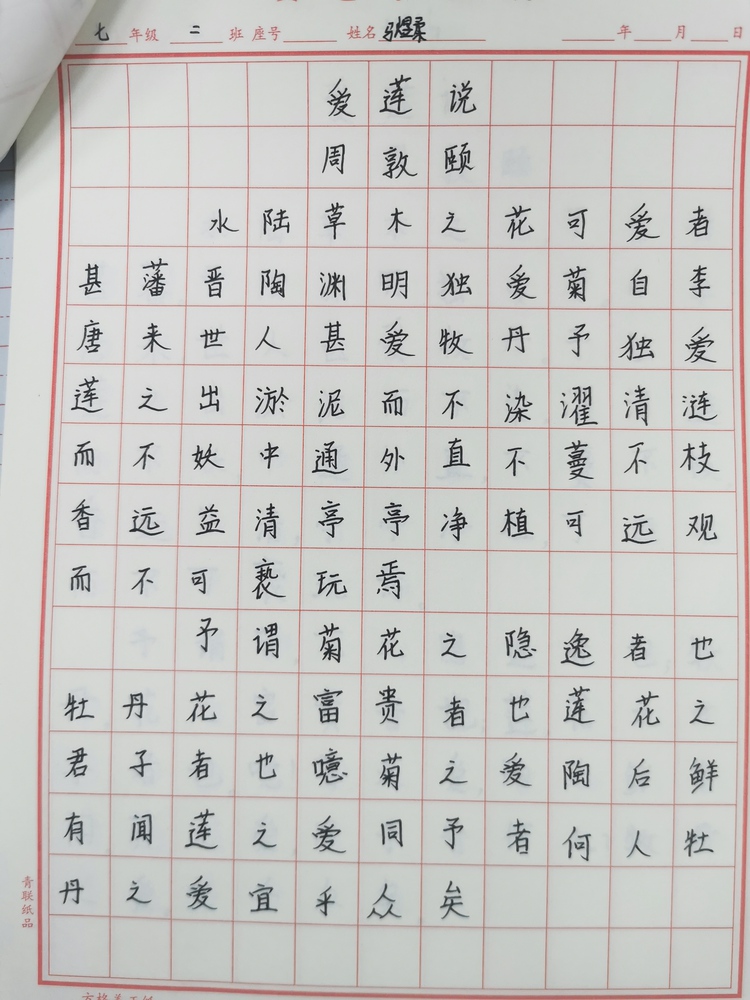 七年级 二班 座号 姓名 马煜柔 年 月 日
爱莲说
周敦颐
水陆草木之花可爱者
甚藩晋陶渊明独爱菊自李
唐来世人甚爱牧丹予独爱
莲之出淤泥而不染濯清涟
而不妖中通外直不蔓不枝
香远益清亭亭净植可远观
而不可亵玩焉
予谓菊花之隐逸者也
牡丹花之富贵者也莲花之
君子者也噫菊之爱陶后鲜
有闻莲之爱同予者何人牡
丹之爱宜乎众矣
青联纸品